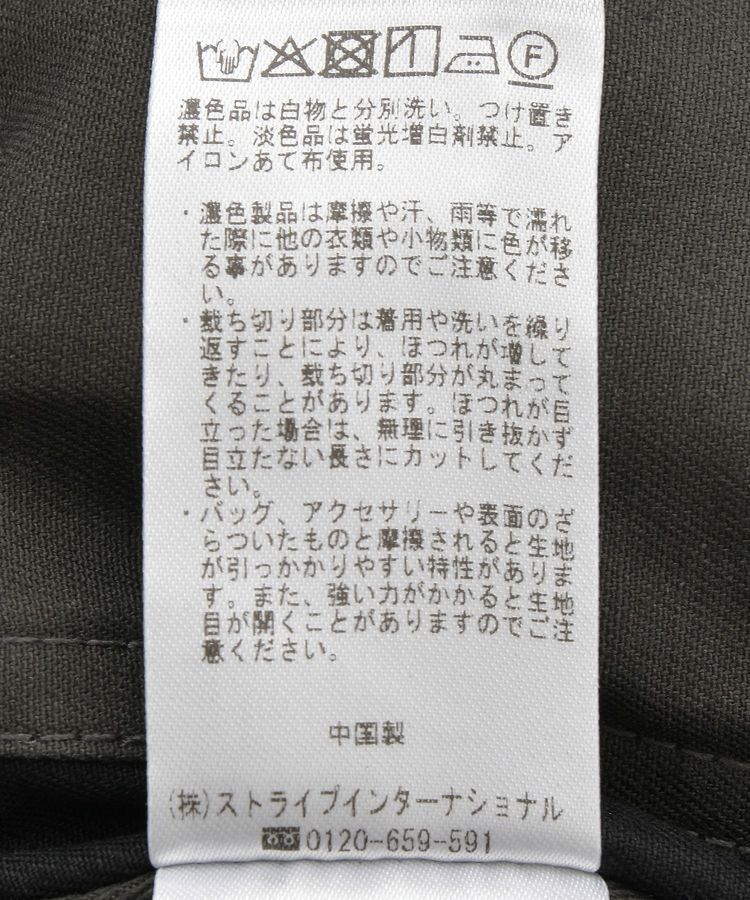 F
濃色品は白物と分別洗い。つけ置き
禁止。淡色品は蛍光増白剤禁止。ア
イロンあて布使用。
・濃色製品は摩擦や汗、雨等で濡れ
た際に他の衣類や小物類に色が移
る事がありますのでご注意くださ
い。
・裁ち切り部分は着用や洗いを繰り
返すことにより、ほつれが増して
きたり、裁ち切り部分が丸まって
くることがあります。ほつれが目
立った場合は、無理に引き抜かず
目立たない長さにカットしてくだ
さい。
・バッグ、アクセサリーや表面のざ
らついたものと摩擦されると生地
が引っかかりやすい特性がありま
す。また、強い力がかかると生地
目が開くことがありますのでご注
意ください。
中国製
(株)ストライプインターナショナル
0120-659-591